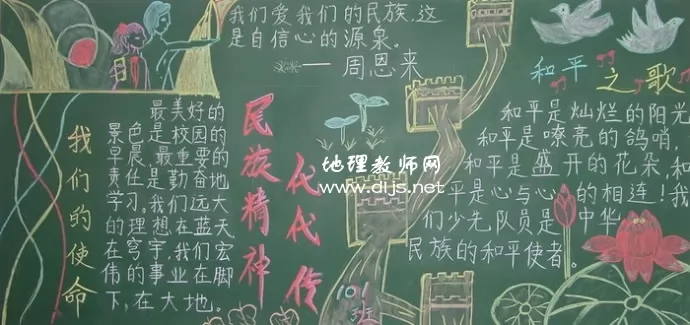 我们爱我们的民族,这
是自信心的源泉。
——周恩来
我们的使命
最美好的
景色是校园的
早晨,最重要的
责任是勤奋地
学习。我们远大
的理想在蓝天
在穹宇,我们宏
伟的事业在脚
下,在大地。
民族精神
代代传
101
班
和平之歌
和平是灿烂的阳光
和平是嘹亮的鸽哨,
和平是盛开的花朵,和
平是心与心的相连!我
们少先队员是中华
民族的和平使者。
地理教师网
www.dljs.net